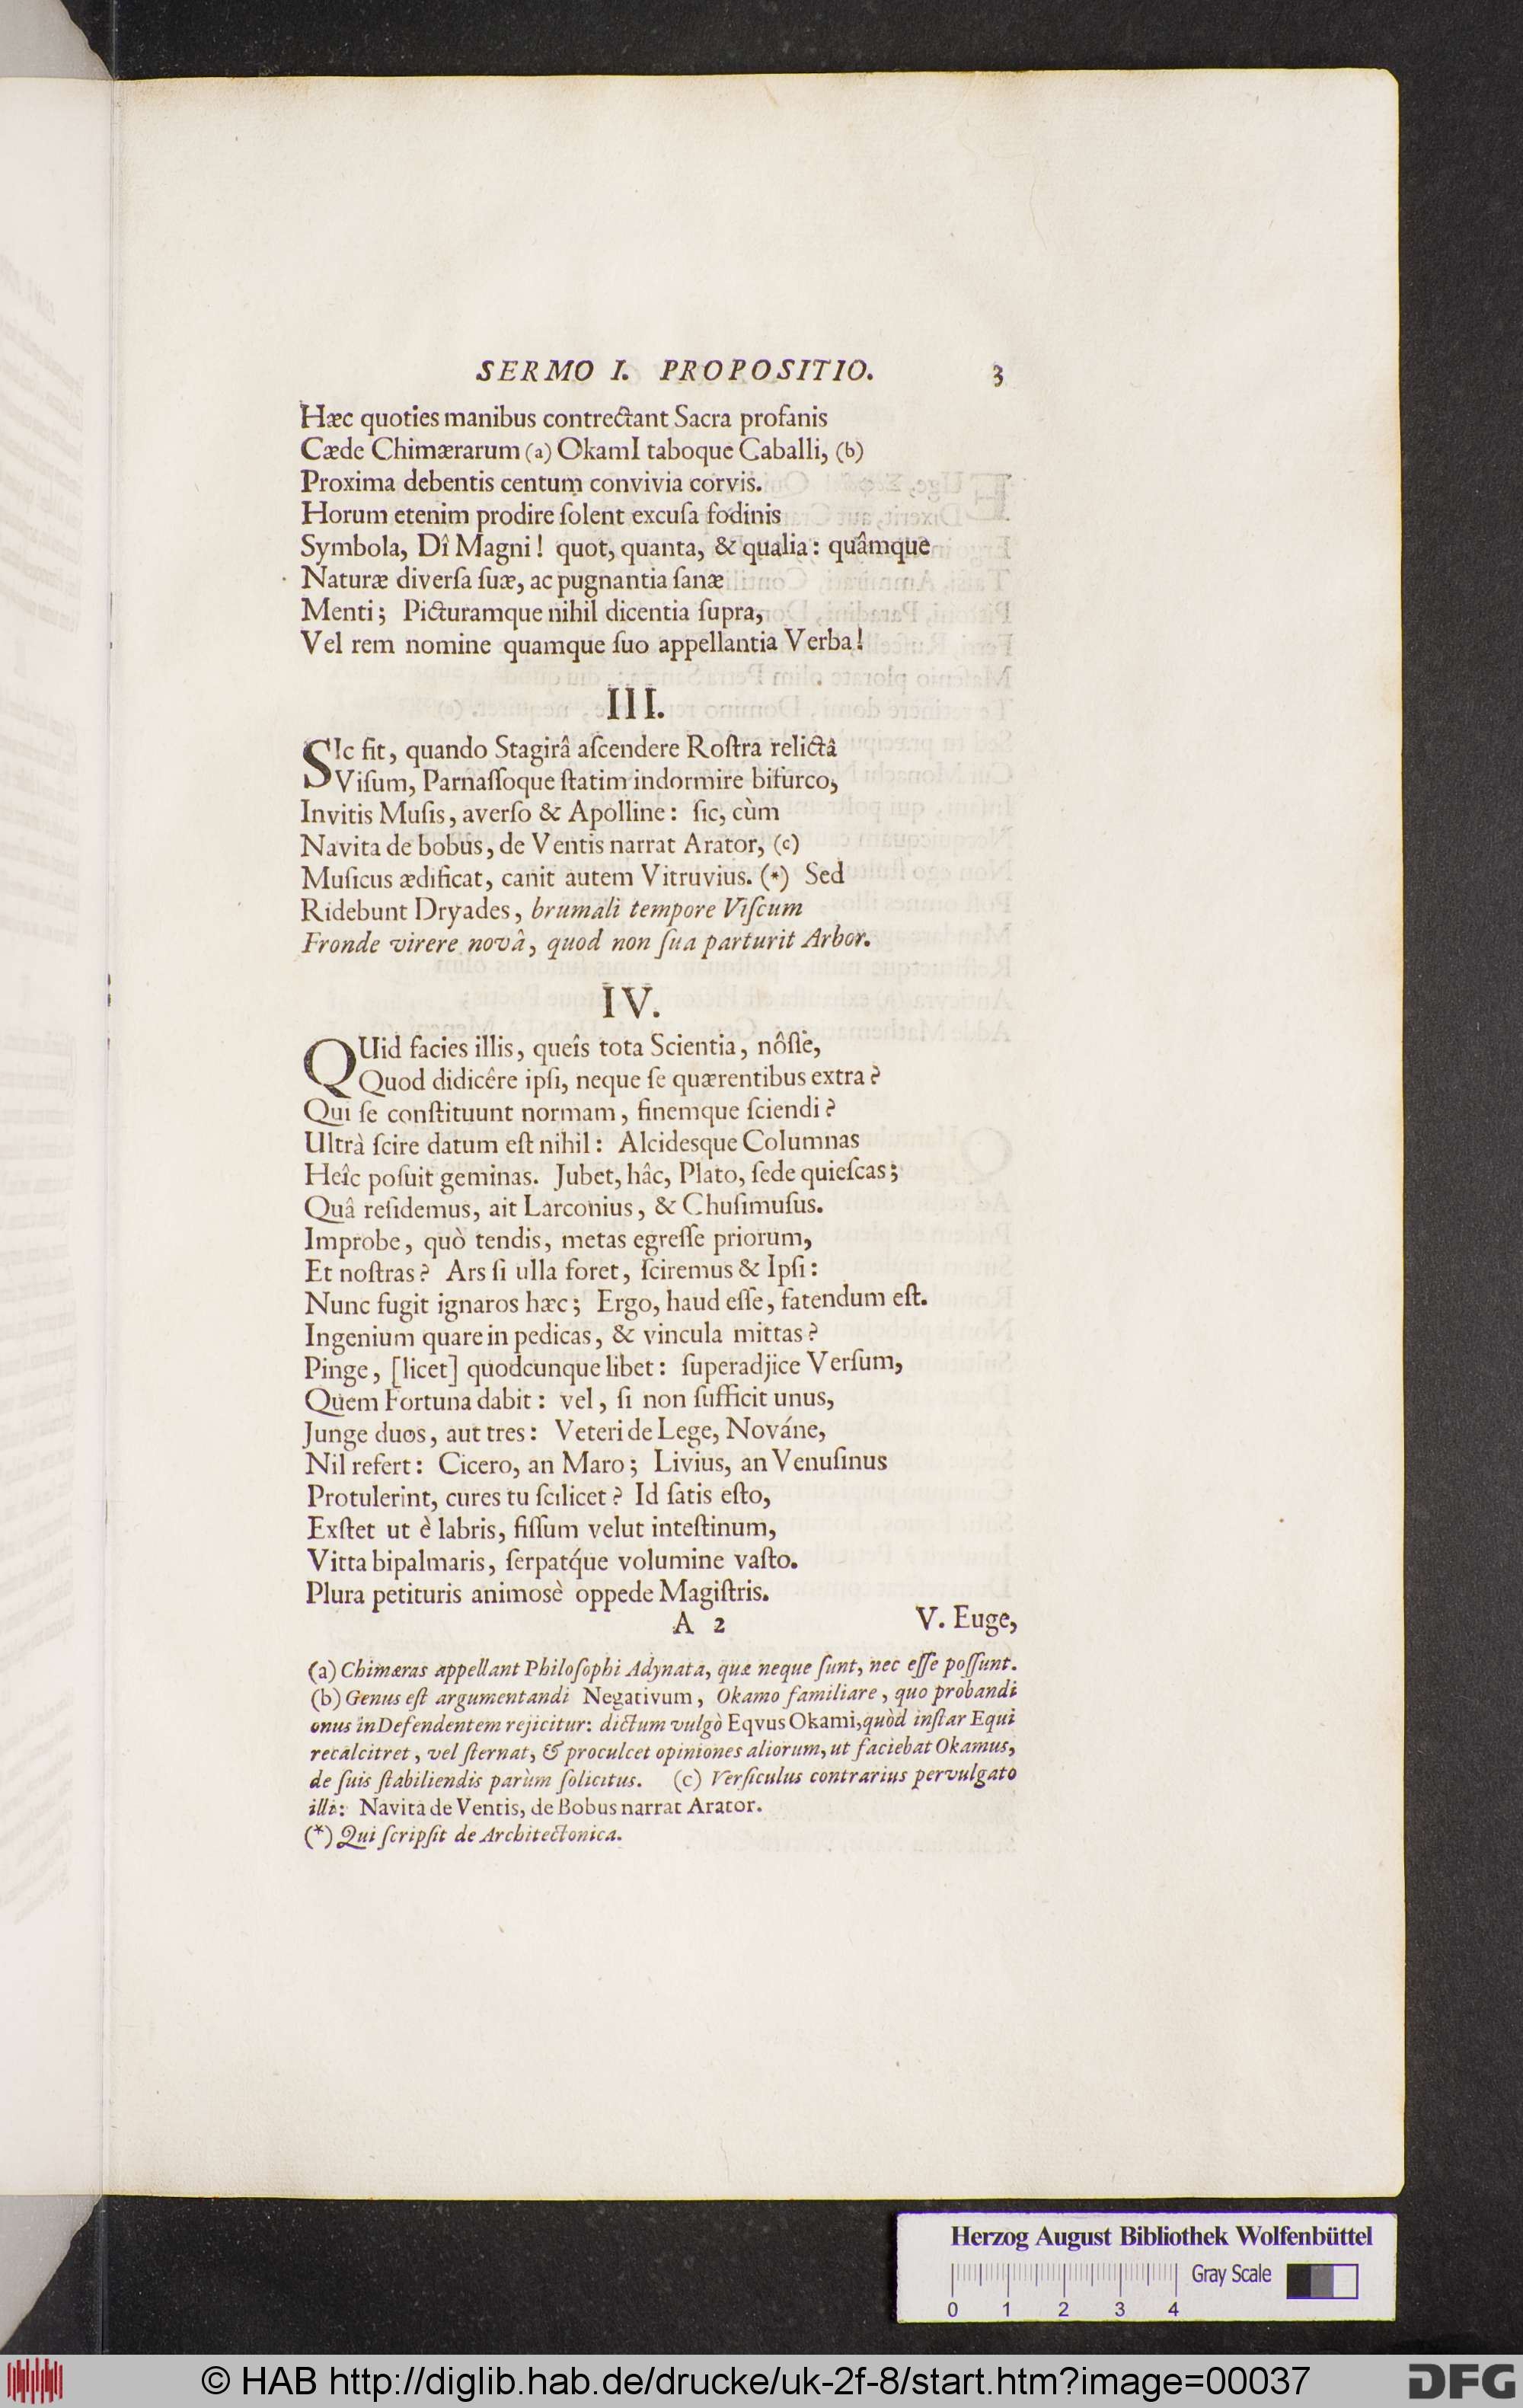 SERMO I. PROPOSITIO. 3
Hæc quoties manibus contrectant Sacra profanis
Cæde Chimærarum (a) OkamI taboque Caballi, (b)
Proxima debentis centum convivia corvis.
Horum etenim prodire ſolent excuſa fodinis
Symbola, Dî Magni! quot, quanta, & qualia: quâmque
Naturæ diverſa ſuæ, ac pugnantia ſanæ
Menti; Picturamque nihil dicentia ſupra,
Vel rem nomine quamque ſuo appellantia Verba!
III.
SIc fit, quando Stagirâ aſcendere Roſtra relictâ
Viſum, Parnaſſoque ſtatim indormire bifurco,
Invitis Muſis, averſo & Apolline: ſic, cùm
Navita de bobus, de Ventis narrat Arator, (c)
Muſicus ædificat, canit autem Vitruvius. (*) Sed
Ridebunt Dryades, brumali tempore Viſcum
Fronde virere novâ, quod non ſua parturit Arbor.
IV.
QUid facies illis, queîs tota Scientia, nôſſe,
Quod didicêre ipſi, neque ſe quærentibus extra?
Qui ſe conſtituunt normam, finemque ſciendi?
Ultrà ſcire datum eſt nihil: Alcidesque Columnas
Heîc poſuit geminas. Jubet, hâc, Plato, ſede quieſcas;
Quâ reſidemus, ait Larconius, & Chuſimuſus.
Improbe, quò tendis, metas egreſſe priorum,
Et noſtras? Ars ſi ulla foret, ſciremus & Ipſi:
Nunc fugit ignaros hæc; Ergo, haud eſſe, fatendum eſt.
Ingenium quare in pedicas, & vincula mittas?
Pinge, [licet] quodcunque libet: ſuperadjice Verſum,
Quem Fortuna dabit: vel, ſi non ſufficit unus,
Junge duos, aut tres: Veteri de Lege, Nováne,
Nil refert: Cicero, an Maro; Livius, an Venuſinus
Protulerint, cures tu ſcilicet? Id ſatis eſto,
Exſtet ut è labris, fiſſum velut inteſtinum,
Vitta bipalmaris, ſerpatq́ue volumine vaſto.
Plura petituris animosè oppede Magiſtris.
A 2 V. Euge,
(a) Chimæras appellant Philoſophi Adynata, quæ neque ſunt, nec eſſe poſſunt.
(b) Genus eſt argumentandi Negativum, Okamo familiare, quo probandi
onus in Defendentem rejicitur: dictum vulgò Eqvus Okami, quòd inſtar Equi
recalcitret, vel ſternat, & proculcet opiniones aliorum, ut faciebat Okamus,
de ſuis ſtabiliendis parùm ſolicitus. (c) Verſiculus contrarius pervulgato
illi: Navita de Ventis, de Bobus narrat Arator.
(*) Qui ſcripſit de Architectonica.
Herzog August Bibliothek Wolfenbüttel
Gray Scale
0 1 2 3 4
© HAB http://diglib.hab.de/drucke/uk-2f-8/start.htm?image=00037
DFG